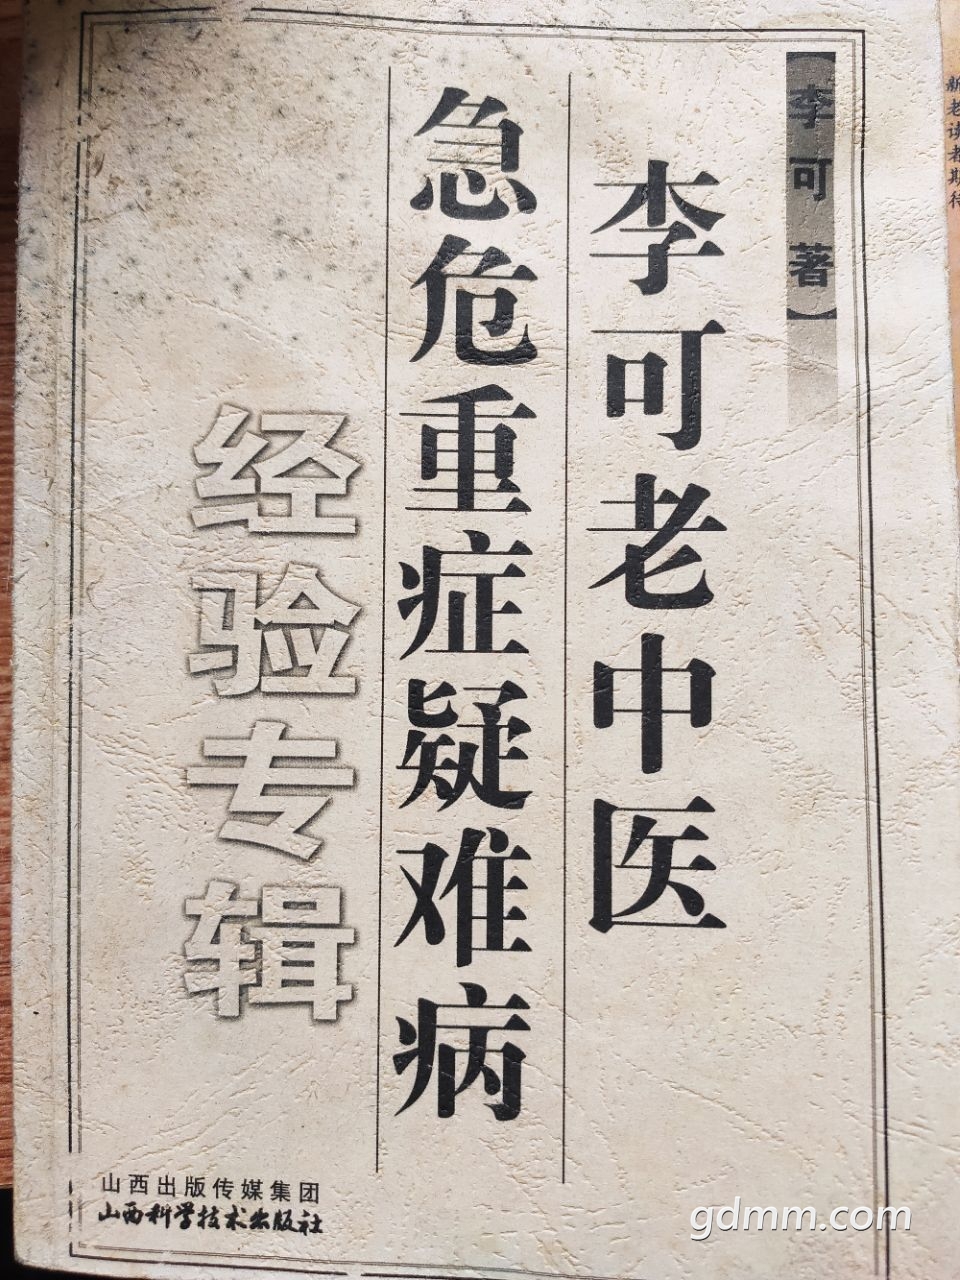 【李可著】
李可老中医
急危重症疑难病
经验专辑
山西出版传媒集团
山西科学技术出版社
新老读者期待
gdmm.com